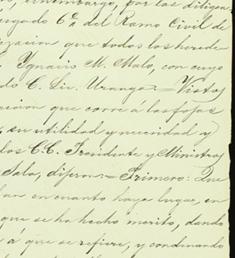 embargo, por las diligen
zgado 6º del Ramo Civil de
racion que todos los herede
Ygnacio M. Malo, con cuyo
do C. Lic. Uranga = Vistos
cion que corre á las fojas
, su utilidad y necesidad y
los C.C. Presidente y Ministros
Sala, dijeron = Primero: Que
ban en cuanto haya lugar, en
que se ha hecho mérito, dando
á que se refiere, y condenando